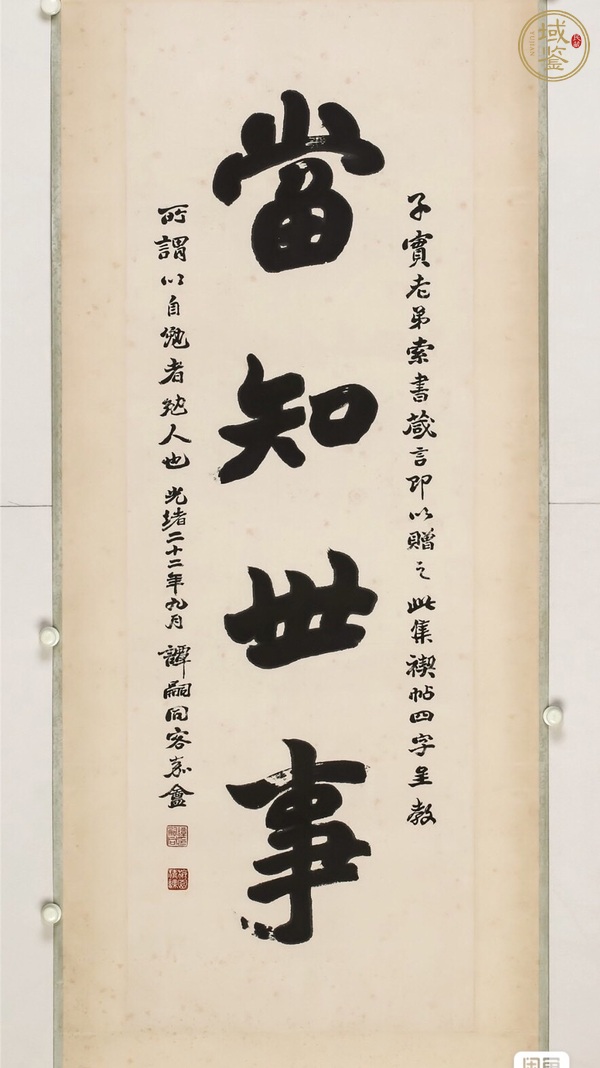 當知世事
子實老弟索書箴言即以贈之此集禊帖四字呈教
所謂以自勉者勉人也 光緒二十二年九月 譚嗣同客秦盦
域鑒
YUJIAN